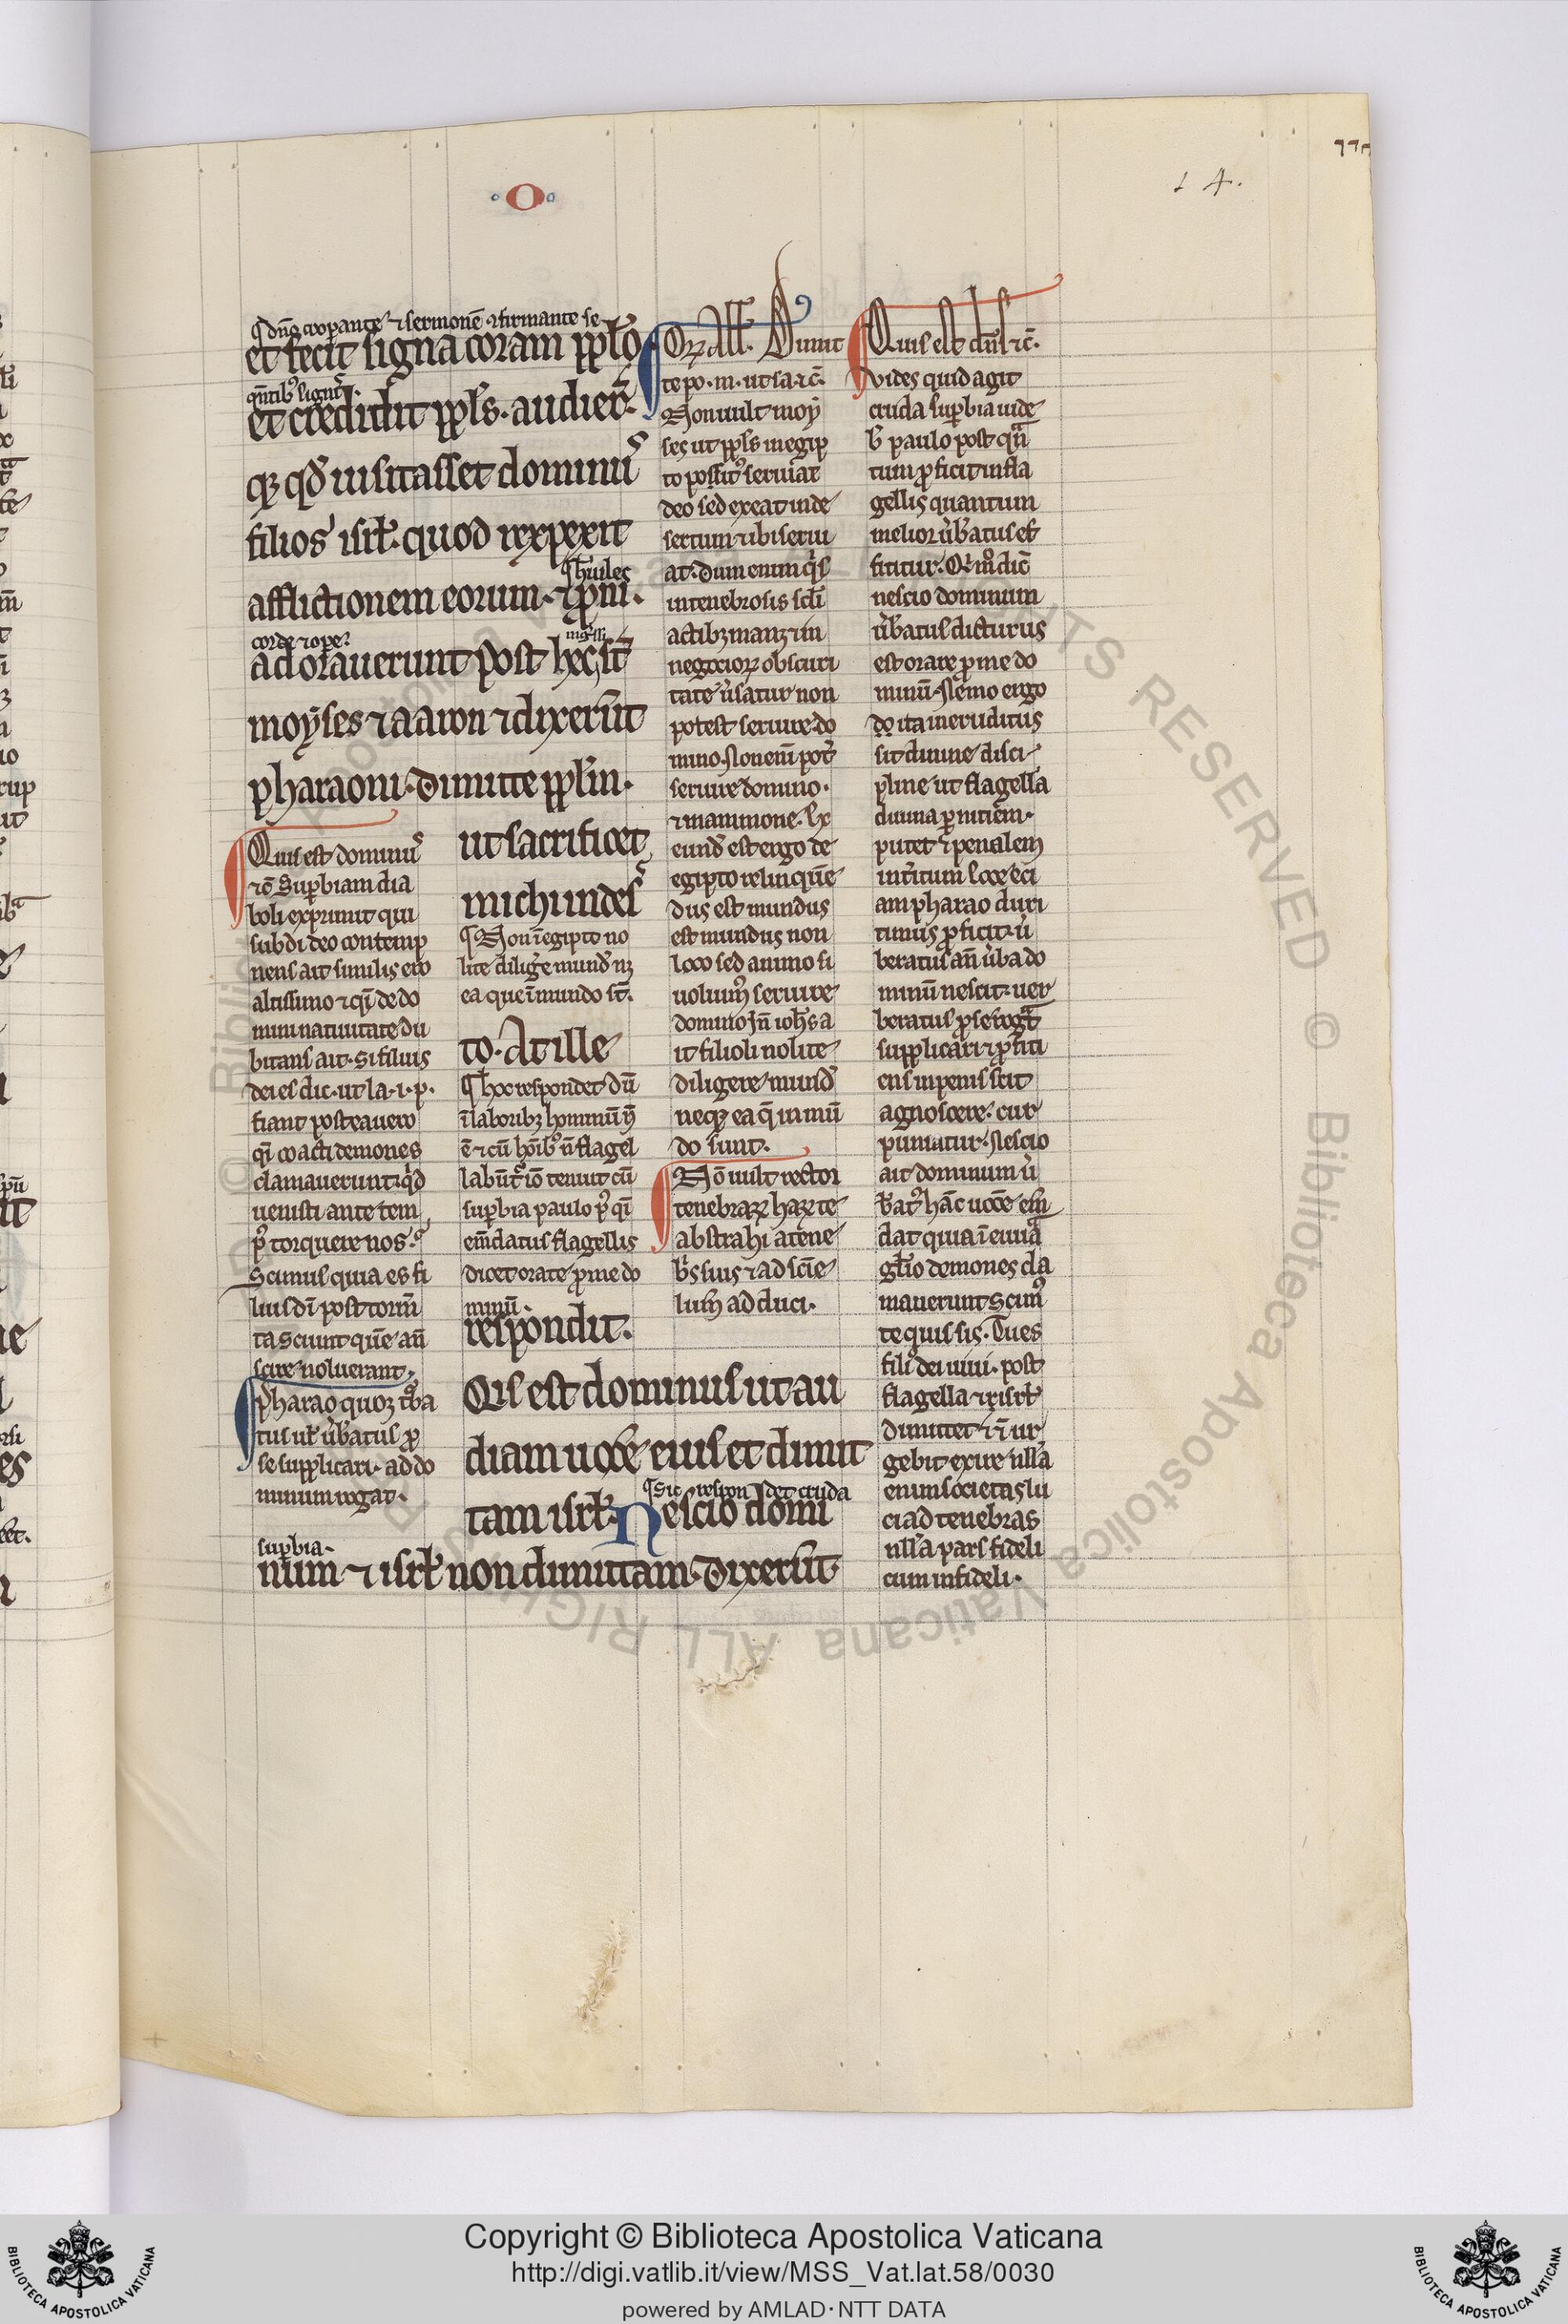 O
14.
¶ dn̄o coopante ⁊ sermonē ꝯfirmante se
et fecit signa coram pplo
qn̄tib; signis.
et credidit ppls. audier̄
qꝫ qd̓ uisitasset dominus
filios isrl̓. quod respexit
¶ humiles
afflictionem eorum. ⁊ proni.
corde ⁊ ope.
ingressi
adorauerunt post hec st̄
moyses ⁊ aaron ⁊ dixerūt
pharaoni. Dimitte pplm̄.
Quis est dominus
⁊c̄ Supbiam dia
boli exprimit qui
subdi deo contemp
nens ait similis ero
altissimo ⁊ qī de do
mini natiuitate du
bitans ait. Si filius
dei es dic. ut la. i. p.
fiant postea uero
qī coacti demones
clamauerunt. qd
uenisti ante tem
p̄ torquere nos.
Scimus quia es fi
lius dī post torm̄
ta sciunt quē an̄
scire noluerant.
Pharao quoꝫ tba
tus ut̓ ūbatus ꝓ
se supplicari. ad do
minum rogat.
ut sacrificet
michi in des
¶ Non ī egipto no
lite diligē mund̓ nꝫ
ea que ī mundo st̄.
to. At ille
¶ hoc respondet dū
ī laboribꝫ hominum n̄
ē ⁊ cū hoībꝫ n̄ flagel
labūt̓ iō tenuit cū
supbia paulo p̄ qī
em̄datus flagellis
dicet orate pro me do
minū.
respondit.
Qis est dominus ut au
diam uocē eius et dimit
¶ Sic respondet cruda
tam isrl̓. Nescio domi
supbia.
num ⁊ isrl̓ non dimittam. Dixerūt
Dimit
te po. m. ut sa. ⁊c̄.
Non uult moy
ses ut ppls in egip
to positꝰ seruiat
deo sed exeat in de
sertum ⁊ ibi serui
at. Dum enim qis
in tenebrosis scl̓i
actibꝫ manꝫ ⁊ in
negocioꝝ obscuri
tate ūsatur non
potest seruire do
mino. Non enī pot̄
seruire domino.
⁊ mammone.
eund̓ est ergo de
egipto relinquē
dus est mundus
est mundus non
loco sed animo si
uolumꝰ seruire
domino Jn̄ iohs a
it filioli nolite
diligere mund̓
neqꝫ ea q̄ in mū
do sunt.
Nō uult rector
tenebraꝝ haꝝ te
abstrahi a tene
bs suis ⁊ ad sciē
lum̄ adduci.
Quis est dn̄s ⁊c̄.
Vides quid agit
cruda supbia uide
b̓ paulo post qn̄
tum ꝓficit in fla
gellis quantum
melior ūbatus ef
ficitur. Qi m̊ dic̄
nescio dominum
ūbatus dicturus
est orate pro me do
minū. Nemo ergo
de ita ineruditus
sit diuine disci
pline ut flagella
diuina ꝑnitiem.
putet ⁊ penalem
int̓itum. ecce eci
am pharao duri
timus ꝓficit ū
beratus an̄ ūba do
minū nescit. uer
beratus ꝓ se rogat
supplicari ⁊ ꝓfiti
ens in penis scit
agnoscere. cur
puniatur. Nescio
ait dominum ū
batꝰ hāc uocē em̄
dat quia ī euua
gl̓io demones cla
mauerunt scimꝰ
te quis sis. Tu es
filiꝰ dei uiui. post
flagella ⁊ x isrl̓
dimittet ⁊ n̄ ur
gebit exire nulla
enim societas lu
ci ad tenebras
nulla pars fideli
cum infideli.
Copyright © Biblioteca Apostolica Vaticana
http://digi.vatlib.it/view/MSS_Vat.lat.58/0030
powered by AMLAD · NTT DATA
BIBLIOTECA APOSTOLICA VATICANA
BIBLIOTECA APOSTOLICA VATICANA